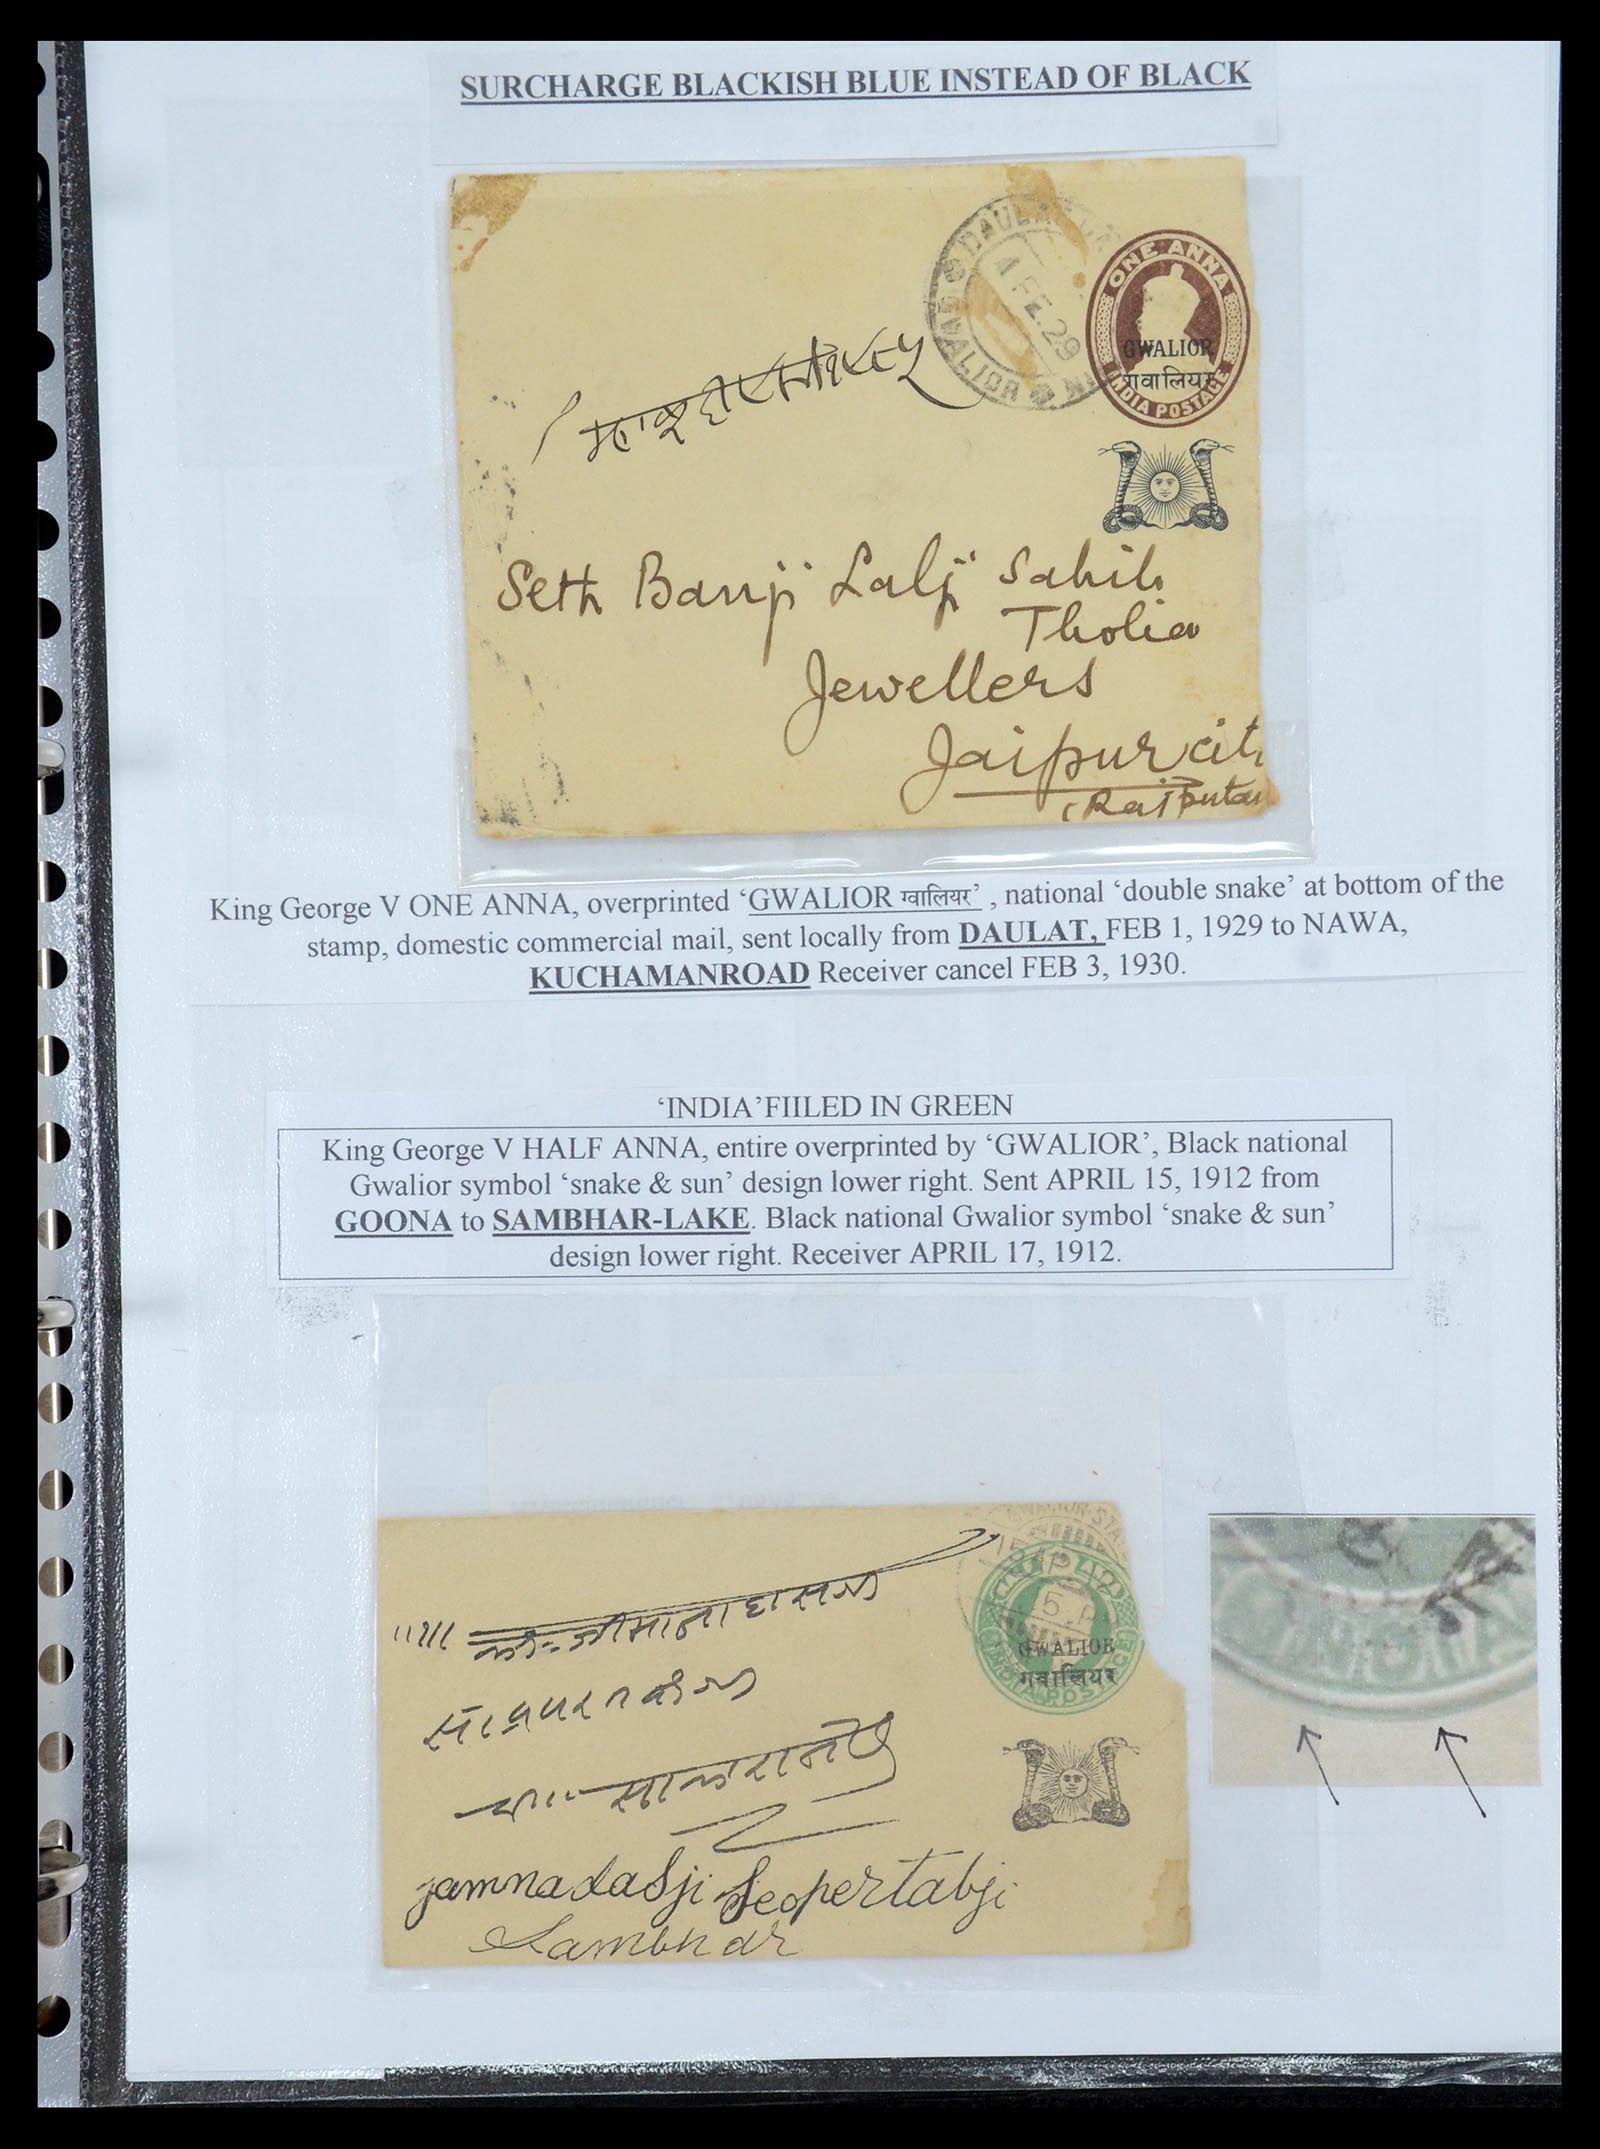 SURCHARGE BLACKISH BLUE INSTEAD OF BLACK
4 FE. 29
GWALIOR
ONE ANNA
GWALIOR
गवालियर
INDIA POSTAGE
Seth Banji Lalji Sahib
Tholia
Jewellers
Jaipur cit
(Rajputan
King George V ONE ANNA, overprinted ‘GWALIOR ग्वालियर’ , national ‘double snake’ at bottom of the
stamp, domestic commercial mail, sent locally from DAULAT, FEB 1, 1929 to NAWA,
KUCHAMANROAD Receiver cancel FEB 3, 1930.
‘INDIA’FIILED IN GREEN
King George V HALF ANNA, entire overprinted by ‘GWALIOR’, Black national
Gwalior symbol ‘snake & sun’ design lower right. Sent APRIL 15, 1912 from
GOONA to SAMBHAR-LAKE. Black national Gwalior symbol ‘snake & sun’
design lower right. Receiver APRIL 17, 1912.
GWALIOR
गवालियर
Jamnadasji Seopertabji
Sambhar